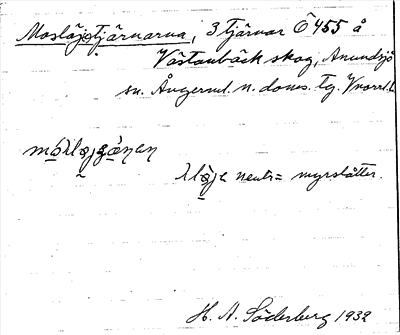 Moslåjtjärnarna, 3 tjärnar Ö 455 å
Västanbäck skog, Anundsjö
sn. Ångerml. n. doms. tg. Vnorrl. l.
neutr = myrslåtter.
H. A. Söderberg 1932